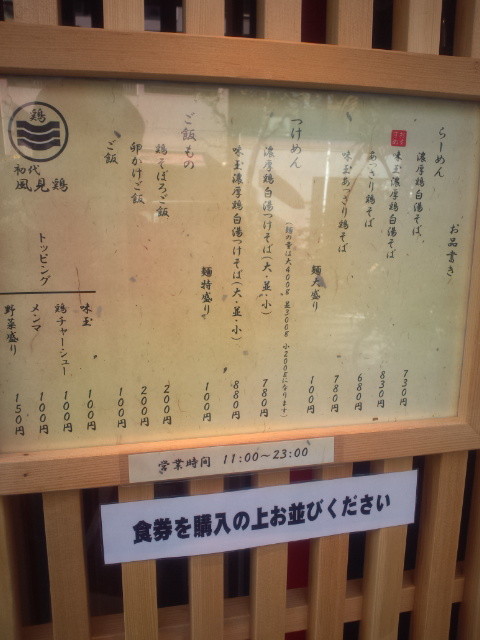 お品書き
らーめん
濃厚鶏白湯そば 730円
おすすめ
味玉濃厚鶏白湯そば 830円
あっさり鶏そば 680円
味玉あっさり鶏そば 780円
麺大盛り 100円
つけめん
(麺の量は大400g 並300g 小200gになります)
濃厚鶏白湯つけそば(大・並・小) 780円
味玉濃厚鶏白湯つけそば(大・並・小) 880円
麺特盛り 100円
ご飯もの
鶏そぼろご飯 200円
卵かけご飯 200円
ご飯 100円
トッピング
味玉 100円
鶏チャーシュー 100円
メンマ 100円
野菜盛り 150円
鶏
初代
風見鶏
営業時間 11:00~23:00
食券を購入の上お並びください